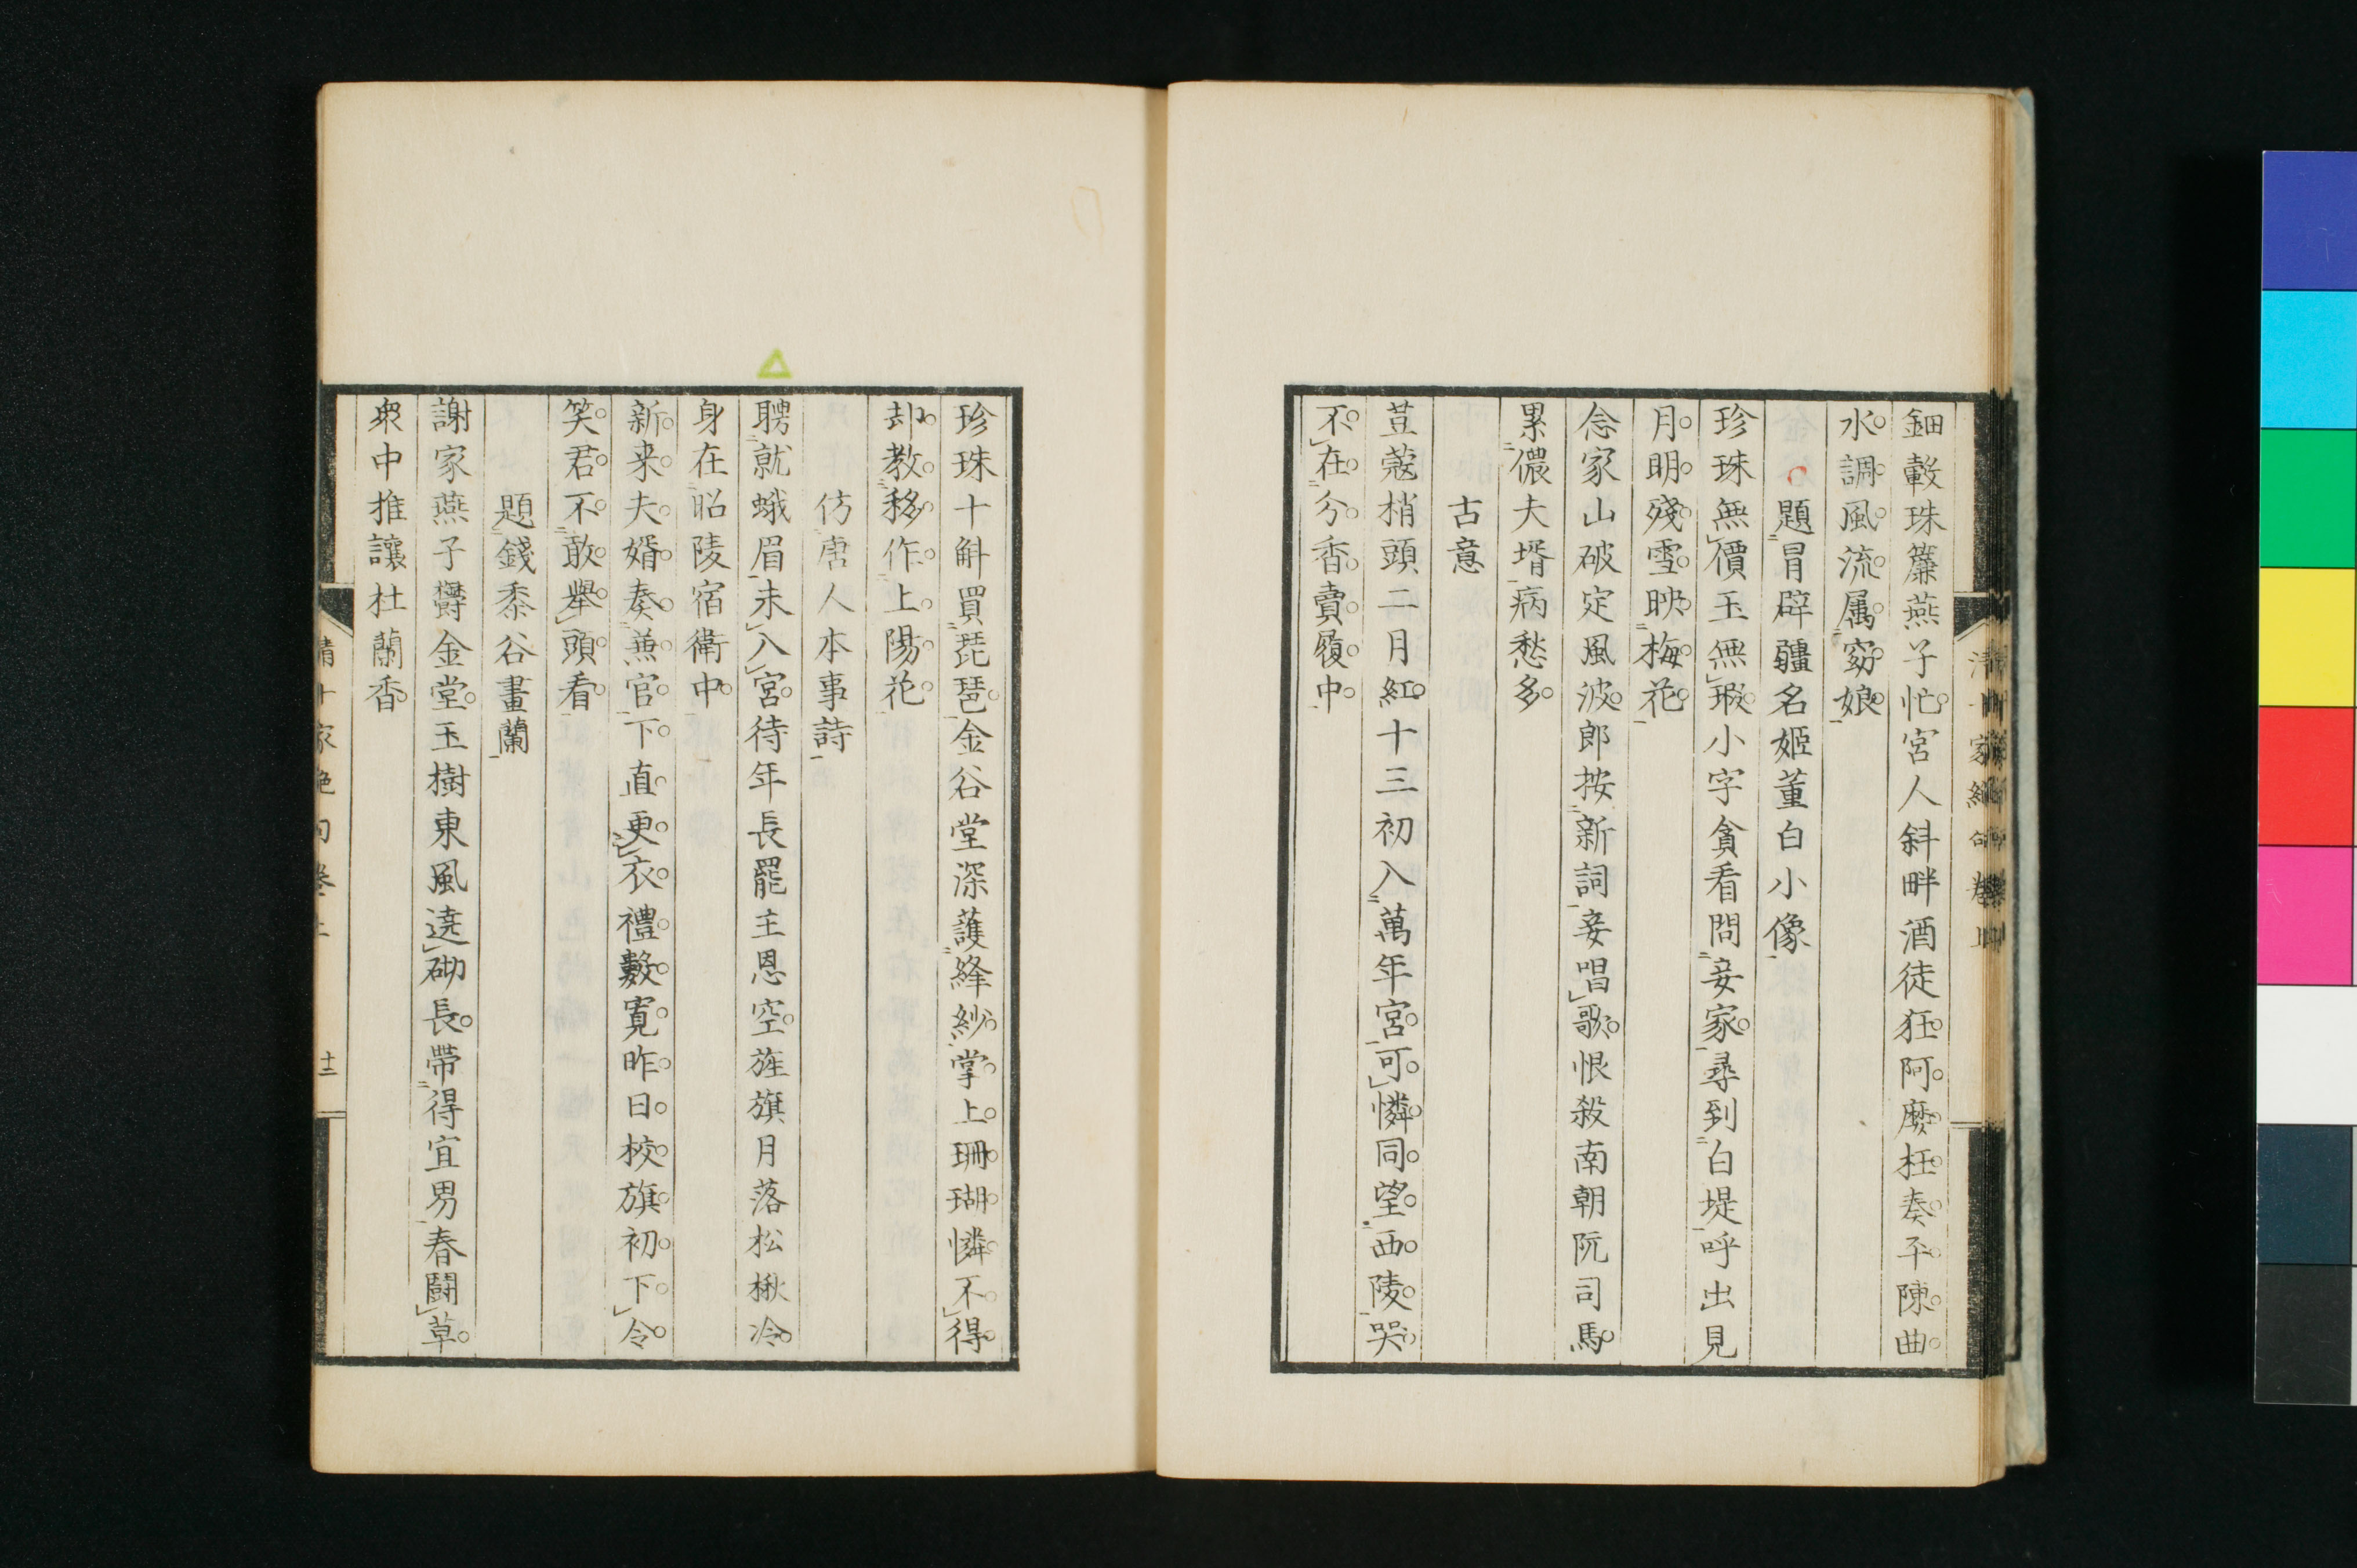 鈿轂珠簾燕子忙宮人斜畔酒徒狂阿麼枉奏平陳曲
水調風流属窈娘
題冒辟疆名姬董白小像
珍珠無價玉無瑕小字貪看問妾家尋到白堤呼出見
月明殘雪映梅花
念家山破定風波郎按新詞妾唱歌恨殺南朝阮司馬
累儂夫壻病愁多
古意
荳蔻梢頭二月紅十三初入萬年宮可憐同望西陵哭
不在分香賣履中
珍珠十斛買琵琶金谷堂深護絳紗掌上珊瑚憐不得
却教移作上陽花
仿唐人本事詩
聘就蛾眉未入宮待年長罷主恩空旌旗月落松楸冷
身在昭陵宿衛中
新来夫婿奏兼官下直更衣禮數寬昨日校旗初下令
笑君不敢舉頭看
題錢黍谷畫蘭
謝家燕子欝金堂玉樹東風遶砌長帶得宜男春鬪草
衆中推讓杜蘭香
清十家絶句卷上
十二